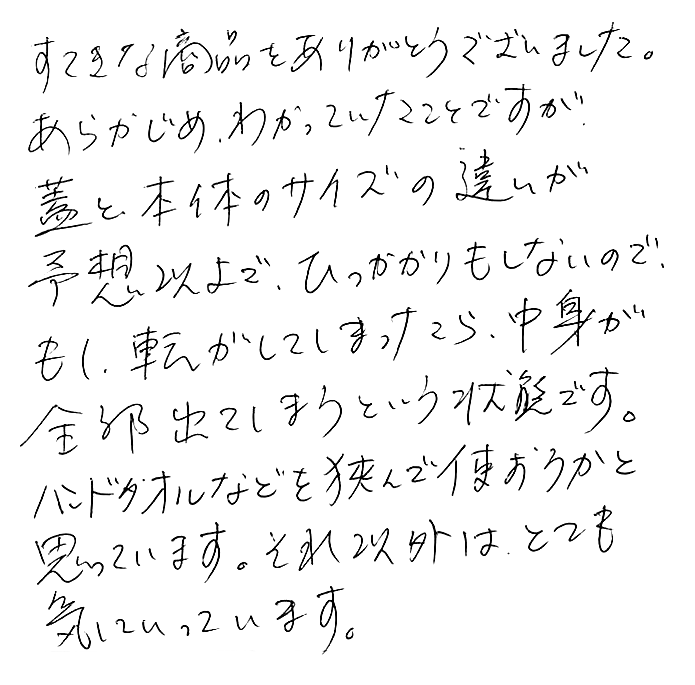 すてきな商品をありがとうございました。
あらかじめ、わかっていたことですが、
蓋と本体のサイズの違いが
予想以上で、ひっかかりもしないので、
もし、転がしてしまったら、中身が
全部出てしまうという状態です。
ハンドタオルなどを挟んで使おうかと
思っています。それ以外は、とても
気にいっています。